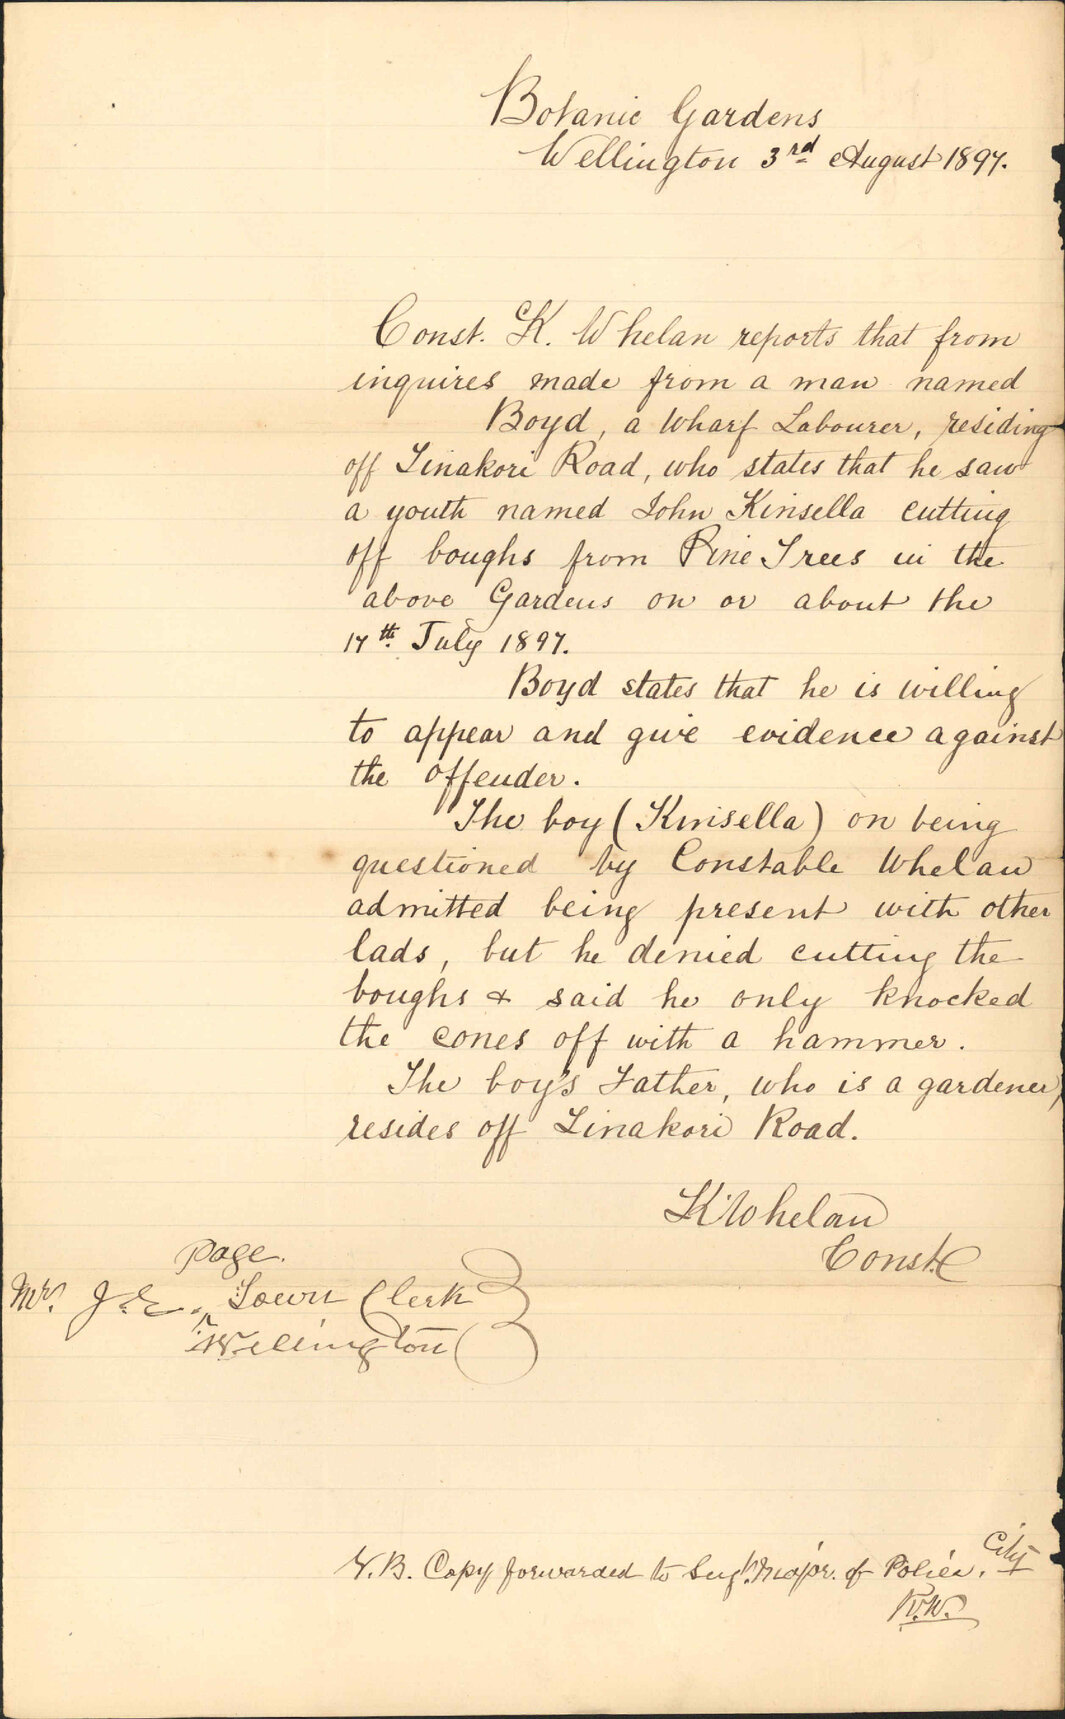 Botanic Gardens
Wellington 3rd August 1897.
Const. K. Whelan reports that from
inquires made from a man named
Boyd, a Wharf Labourer, residing
off Tinakori Road, who states that he saw
a youth named John Kinsella cutting
off boughs from Pine Trees in the
above Gardens on or about the
17th. July 1897.
Boyd states that he is willing
to appear and give evidence against
the offender.
The boy (Kinsella) on being
questioned by Constable Whelan
admitted being present with other
lads, but he denied cutting the
boughs & said he only knocked
the cones off with a hammer.
The boy's Father, who is a gardener,
resides off Tinakori Road.
K Whelan
Const.
Page.
Mr. J.E. Town Clerk
Wellington
N.B. Copy forwarded to Sergt. Major. of Police. City
K.W.